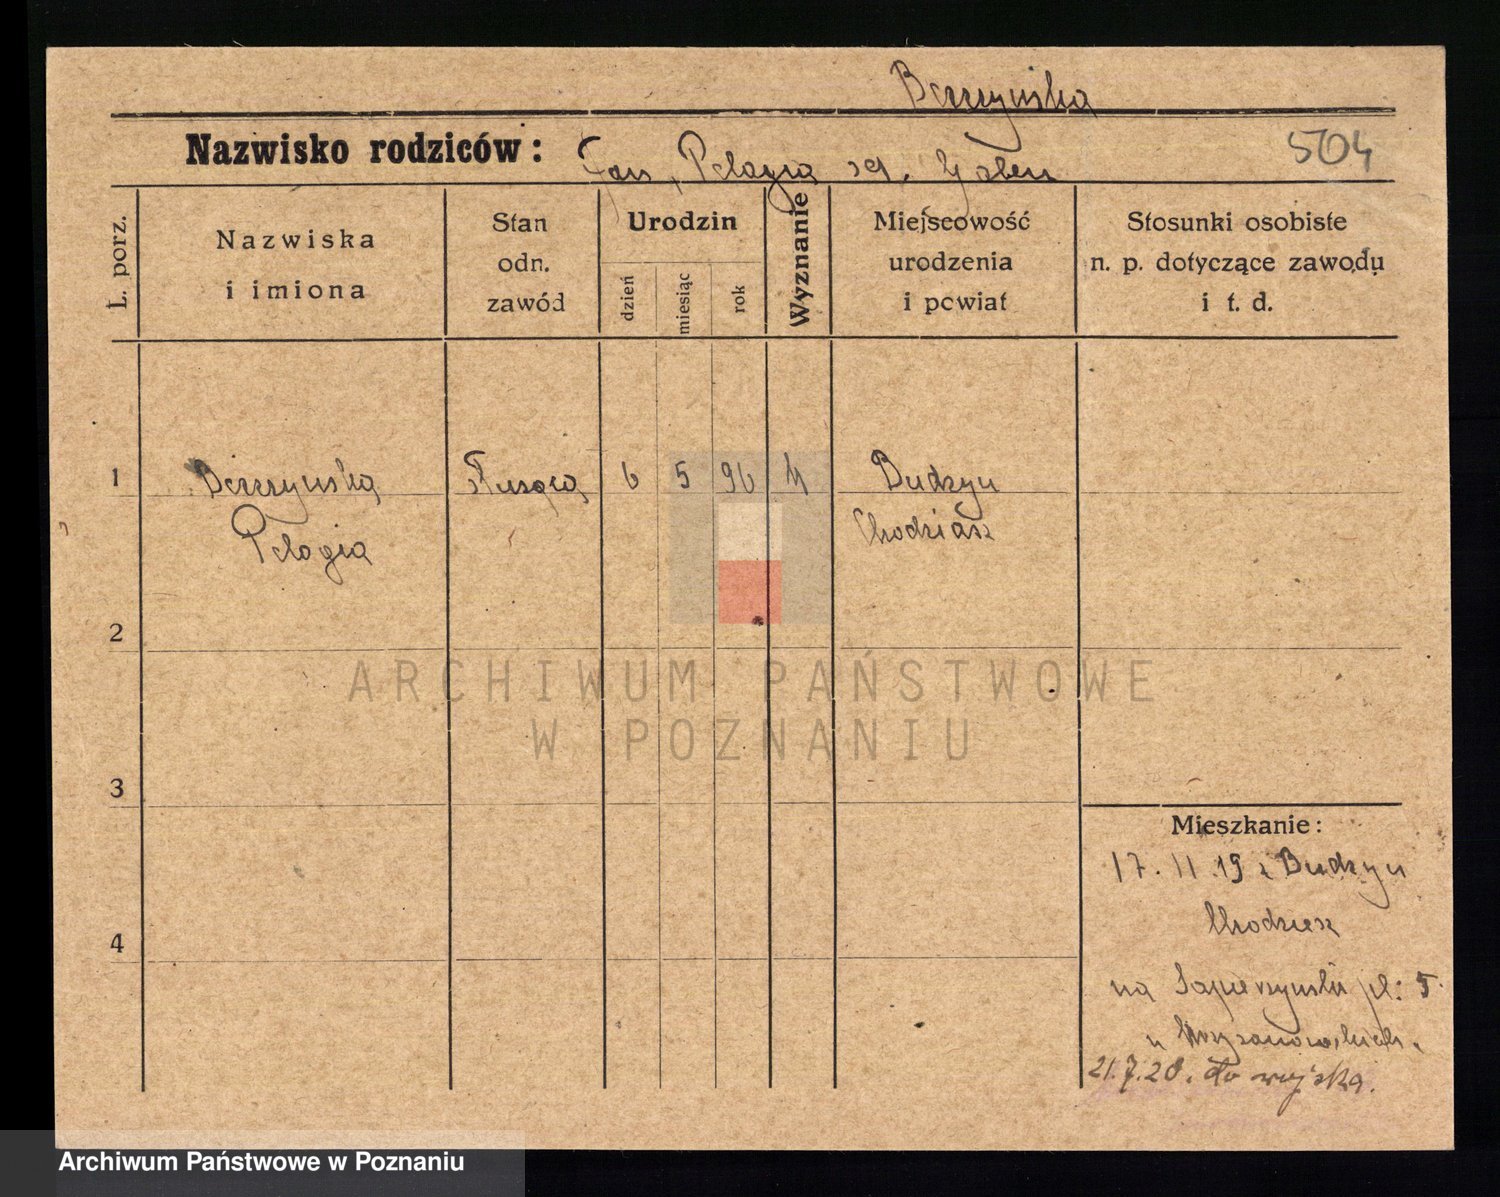 Berzyńska
Nazwisko rodziców: Jan, Pelagia
504
L. porz.
Nazwiska
i imiona
Stan
odn.
zawód
Urodzin
dzień
miesiąc
rok
Wyznanie
Miejscowość
urodzenia
i powiat
Stosunki osobiste
n. p. dotyczące zawodu
i t. d.
1
Służąca 6 5 96 k Budzyn
Pelagia
Chodzież
2
ARCHIWUM PAŃSTWOWE
W POZNANIU
3
Mieszkanie:
17. 11. 19 z Budzyn
Chodzież
4
na Sapieżyński pl: 5
u
21.7.20. do wojska.
Archiwum Państwowe w Poznaniu